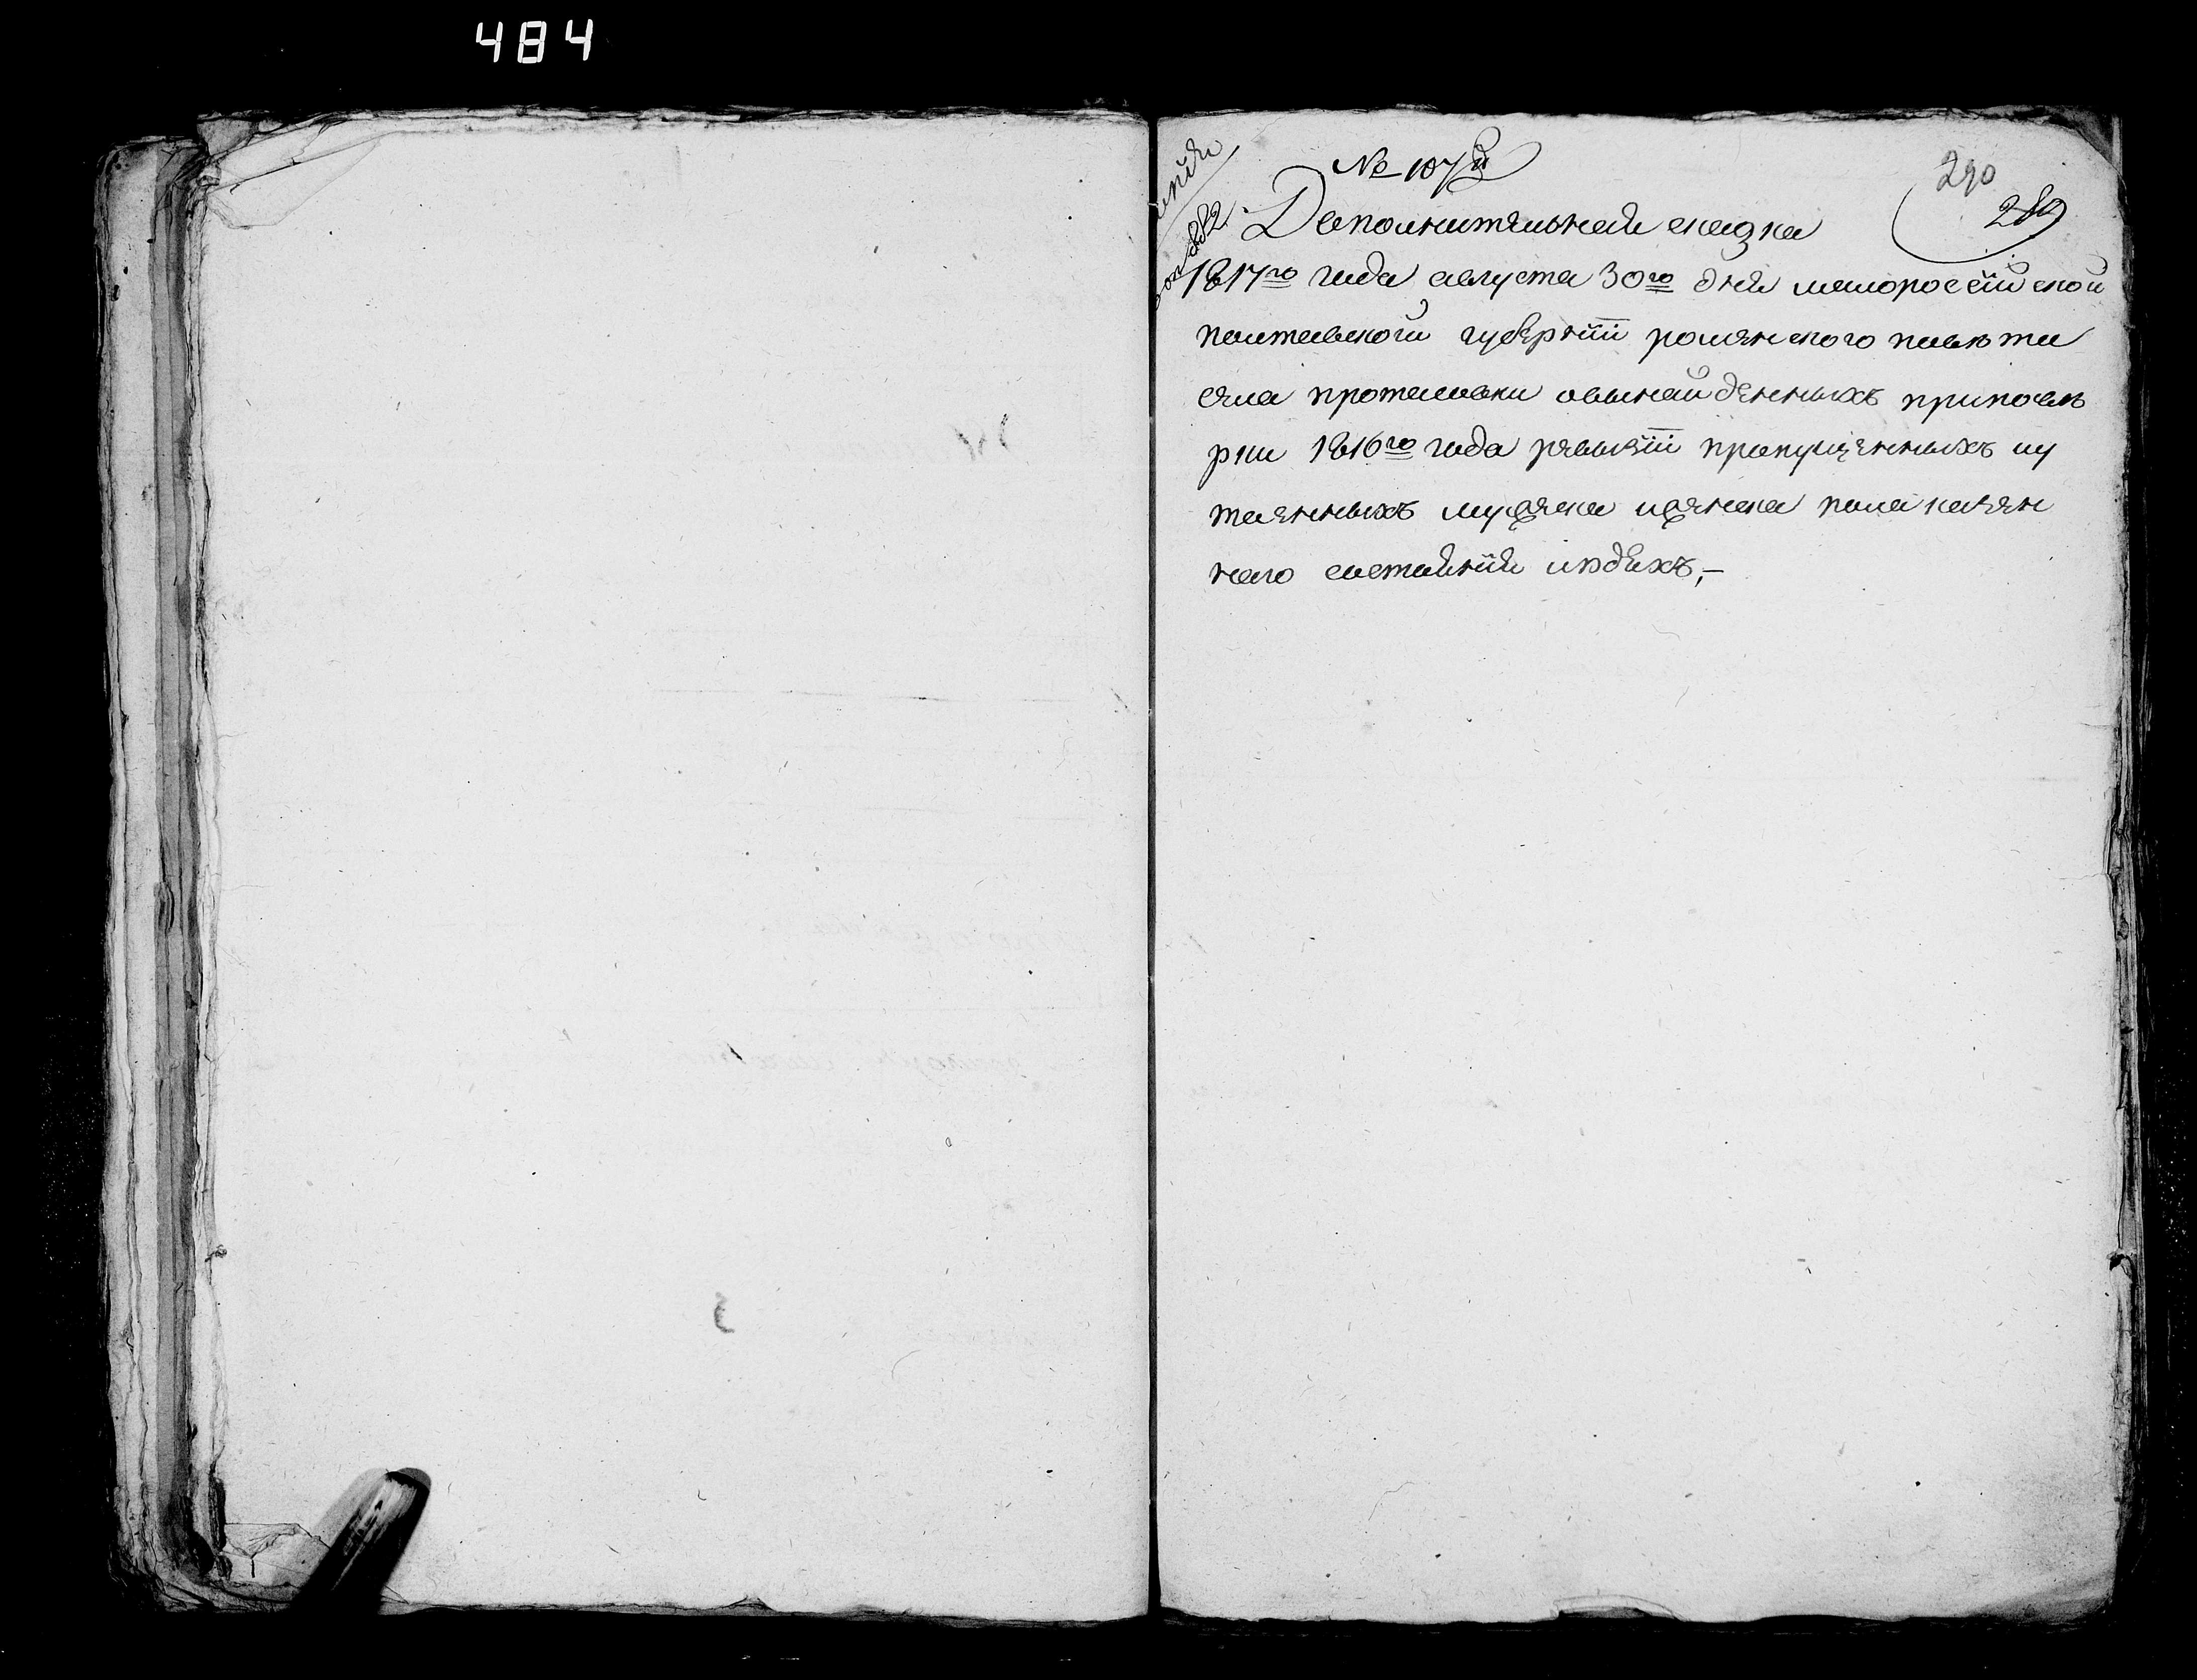 484
№ 107й
290
289
Дополнительная сказка
1817го года августа 30го дня малоросейской
полтавской губерніи роменского повѣта
села протасовки обынайденныхъ приповѣ
рки 1816го года ревизіи пропущенныхъ иу
таенныхъ мужеска иженска пола казен
наго состоянія людехъ,—